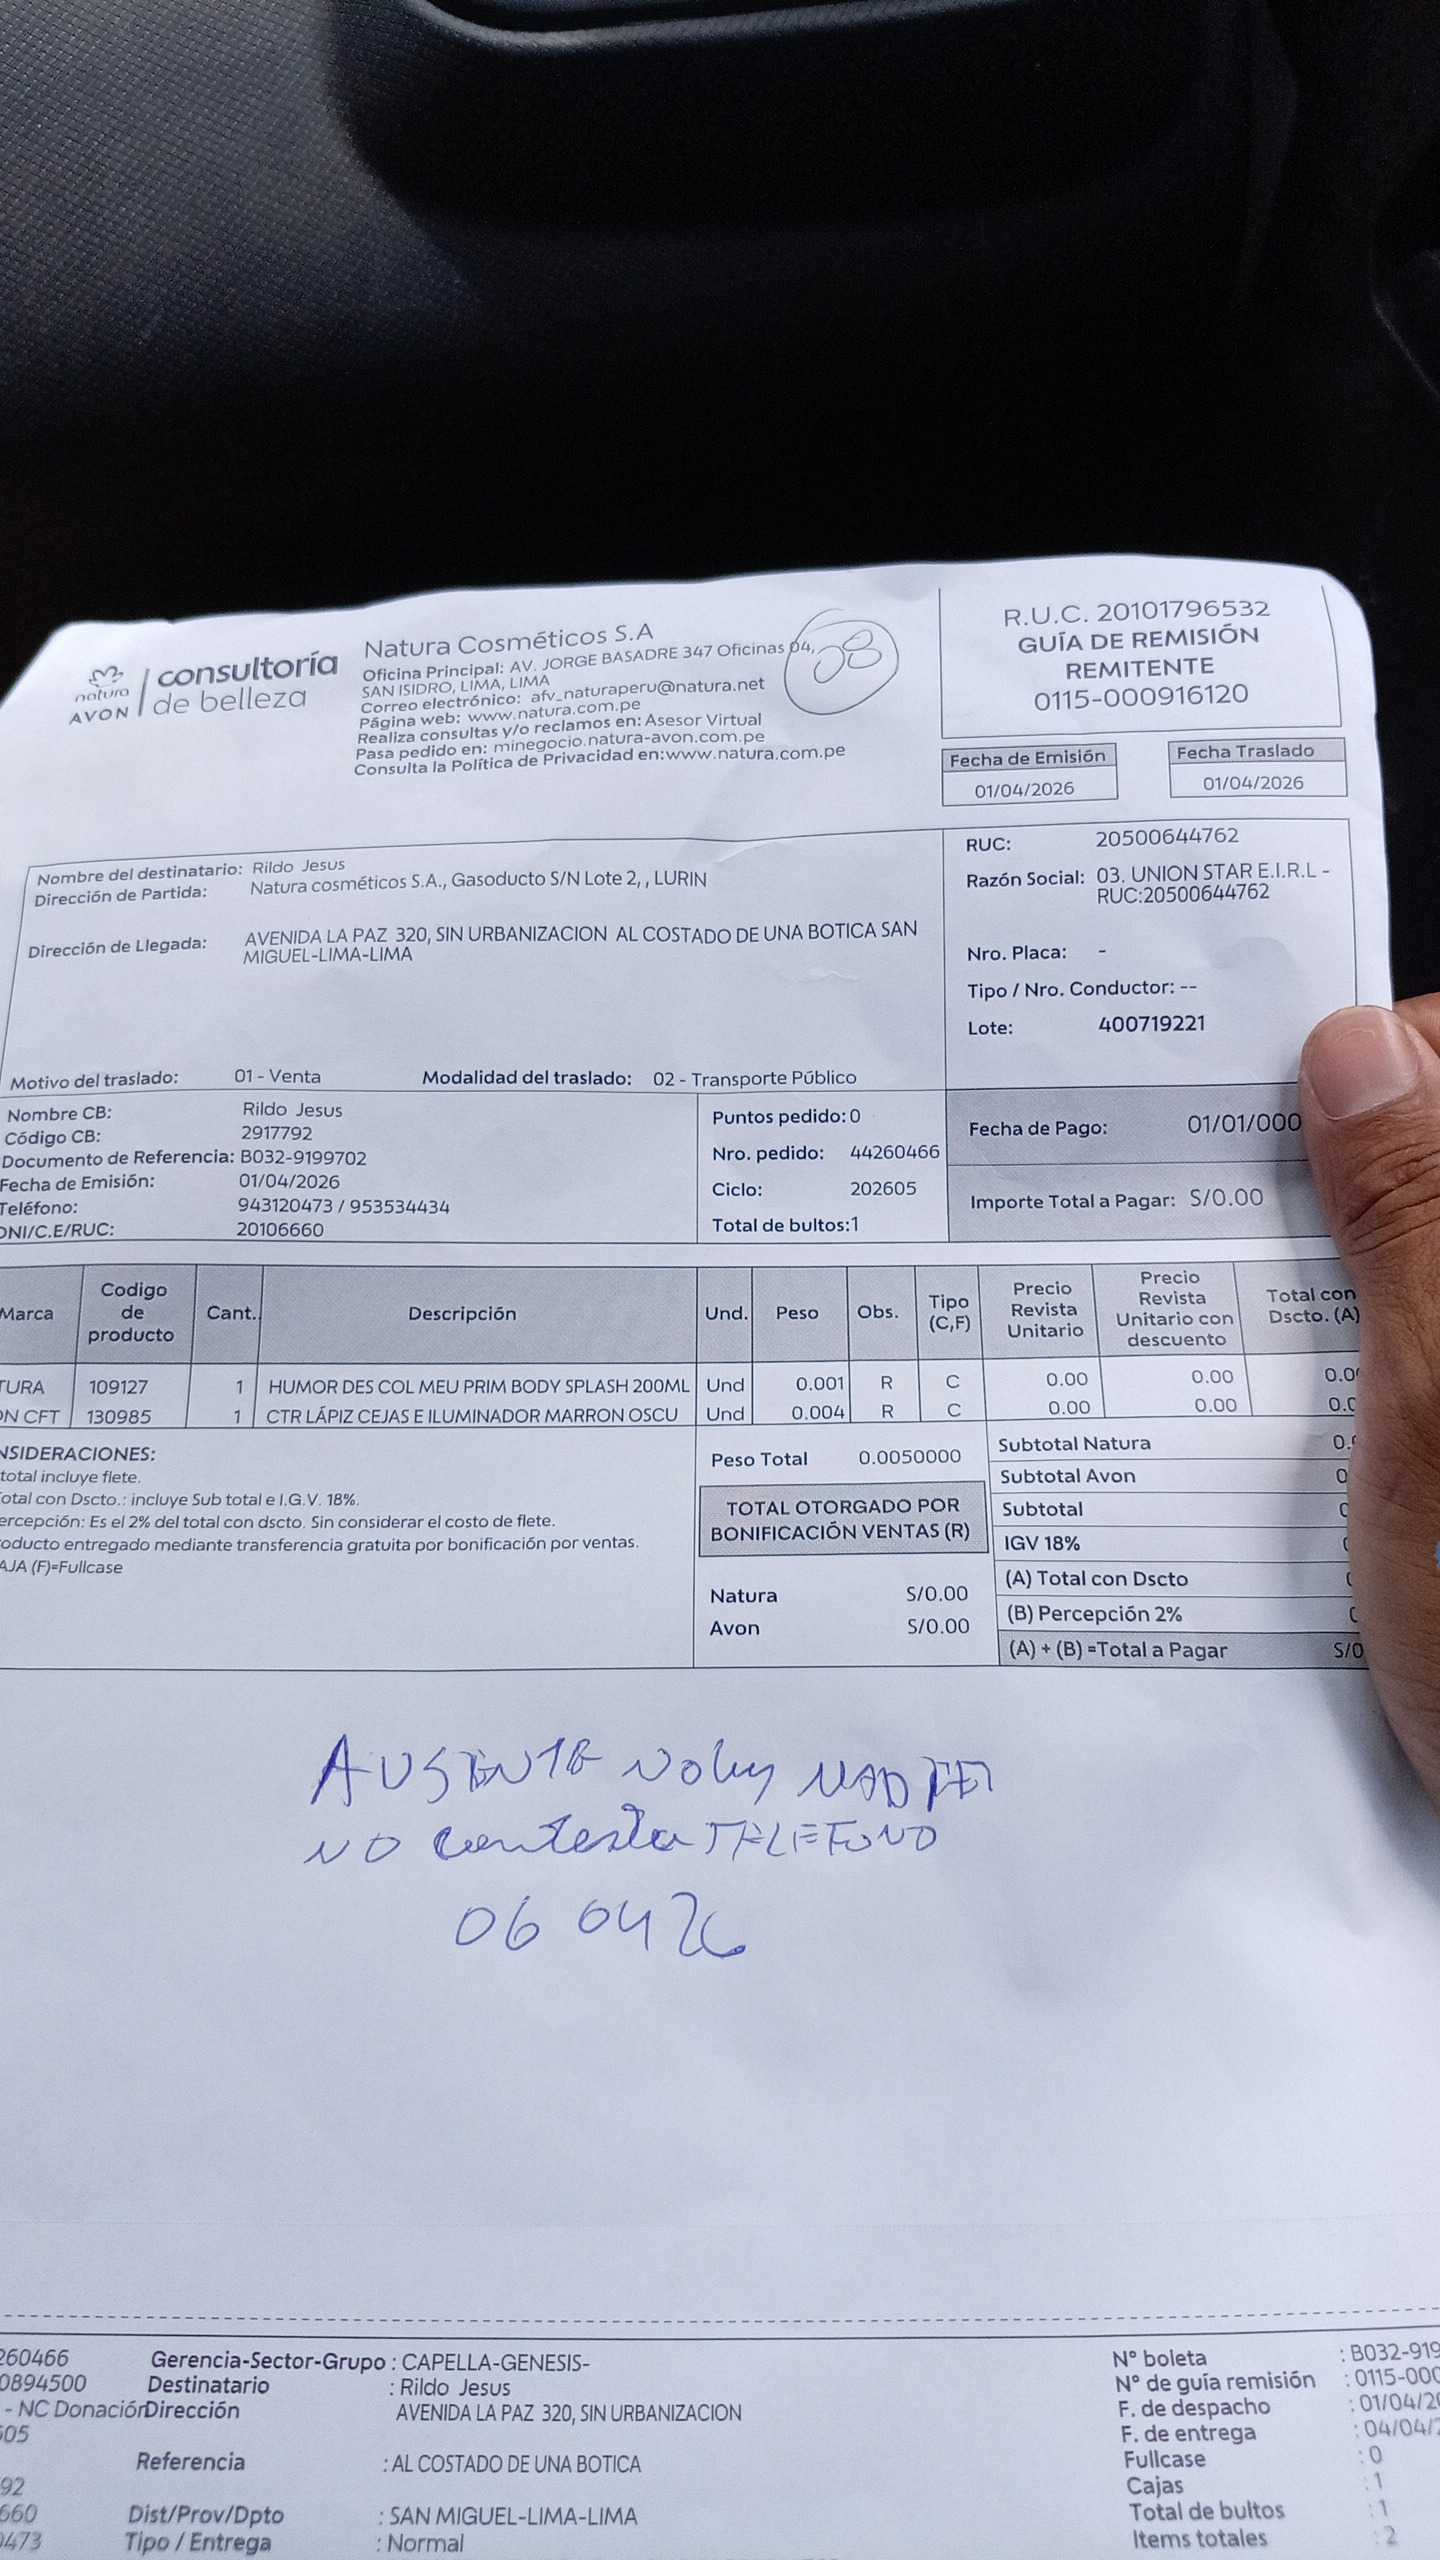 natura
AVON
consultoría
de belleza
Natura Cosméticos S.A
Oficina Principal: AV. JORGE BASADRE 347 Oficinas 04,
SAN ISIDRO, LIMA, LIMA
Correo electrónico: afv_naturaperu@natura.net
Página web: www.natura.com.pe
Realiza consultas y/o reclamos en: Asesor Virtual
Pasa pedido en: minegocio.natura-avon.com.pe
Consulta la Política de Privacidad en:www.natura.com.pe
08
R.U.C. 20101796532
GUÍA DE REMISIÓN
REMITENTE
0115-000916120
Fecha de Emisión
01/04/2026
Fecha Traslado
01/04/2026
Nombre del destinatario: Rildo Jesus
Dirección de Partida: Natura cosméticos S.A., Gasoducto S/N Lote 2, , LURIN
Dirección de Llegada: AVENIDA LA PAZ 320, SIN URBANIZACION AL COSTADO DE UNA BOTICA SAN
MIGUEL-LIMA-LIMA
Motivo del traslado: 01 - Venta Modalidad del traslado: 02 - Transporte Público
RUC: 20500644762
Razón Social: 03. UNION STAR E.I.R.L -
RUC:20500644762
Nro. Placa: -
Tipo / Nro. Conductor: --
Lote: 400719221
Nombre CB: Rildo Jesus
Código CB: 2917792
Documento de Referencia: B032-9199702
Fecha de Emisión: 01/04/2026
Teléfono: 943120473 / 953534434
DNI/C.E/RUC: 20106660
Puntos pedido: 0
Nro. pedido: 44260466
Ciclo: 202605
Total de bultos:1
Fecha de Pago: 01/01/000
Importe Total a Pagar: S/0.00
Marca Codigo de producto Cant. Descripción Und. Peso Obs. Tipo (C,F) Precio Revista Unitario Precio Revista Unitario con descuento Total con Dscto. (A)
TURA 109127 1 HUMOR DES COL MEU PRIM BODY SPLASH 200ML Und 0.001 R C 0.00 0.00 0.0
ON CFT 130985 1 CTR LÁPIZ CEJAS E ILUMINADOR MARRON OSCU Und 0.004 R C 0.00 0.00 0.0
NSIDERACIONES:
total incluye flete.
otal con Dscto.: incluye Sub total e I.G.V. 18%.
ercepción: Es el 2% del total con dscto. Sin considerar el costo de flete.
oducto entregado mediante transferencia gratuita por bonificación por ventas.
AJA (F)=Fullcase
Peso Total 0.0050000
TOTAL OTORGADO POR
BONIFICACIÓN VENTAS (R)
Natura S/0.00
Avon S/0.00
Subtotal Natura 0.
Subtotal Avon 0
Subtotal
IGV 18%
(A) Total con Dscto
(B) Percepción 2%
(A) + (B) =Total a Pagar S/0
AUSENTE
NO contesta TELEFONO
06 04 26
260466
0894500
- NC Donación
605
92
660
0473
Gerencia-Sector-Grupo : CAPELLA-GENESIS-
Destinatario : Rildo Jesus
Dirección AVENIDA LA PAZ 320, SIN URBANIZACION
Referencia : AL COSTADO DE UNA BOTICA
Dist/Prov/Dpto : SAN MIGUEL-LIMA-LIMA
Tipo / Entrega : Normal
N° boleta : B032-919
N° de guía remisión : 0115-000
F. de despacho : 01/04/20
F. de entrega : 04/04/
Fullcase : 0
Cajas : 1
Total de bultos : 1
Items totales : 2